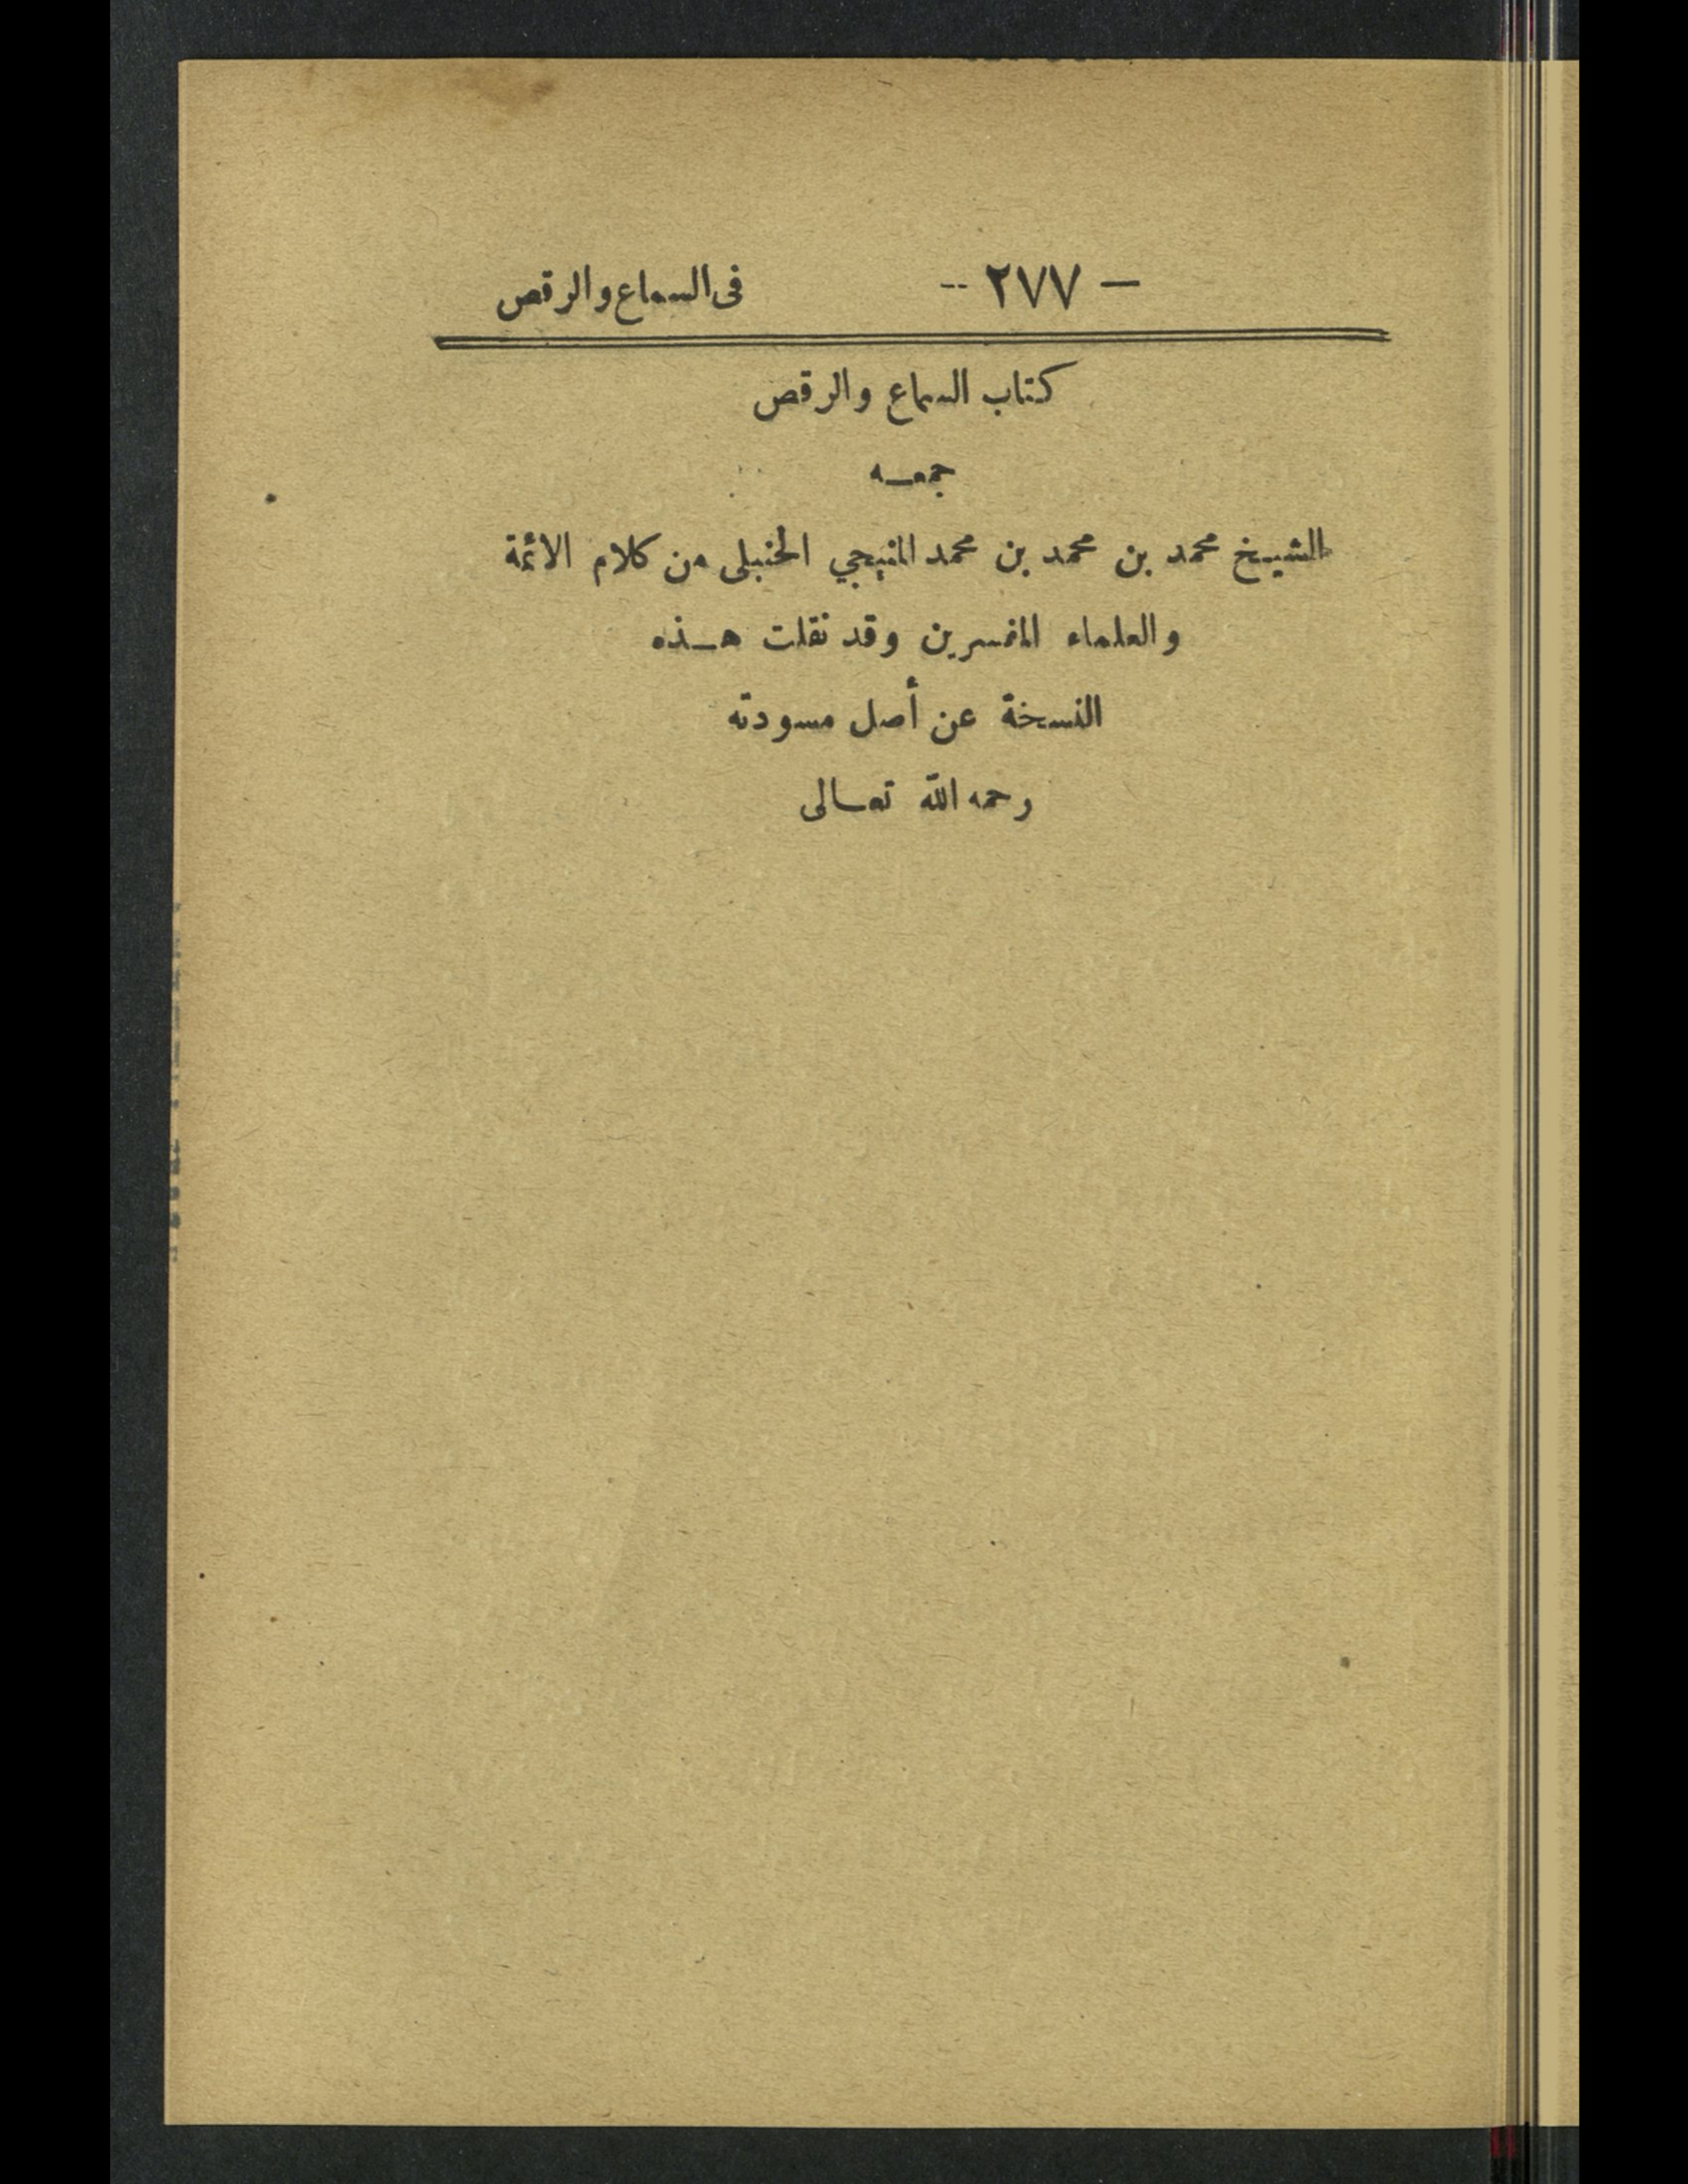 — ٢٧٧ -- في السماع والرقص
كتاب السماع والرقص
جمعـه
الشيخ محمد بن محمد بن محمد المنبجي الحنبلى من كلام الائمة
والعلماء المفسرين وقد نقلت هـذه
النسخة عن أصل مسودته
رحمه الله تعـالى